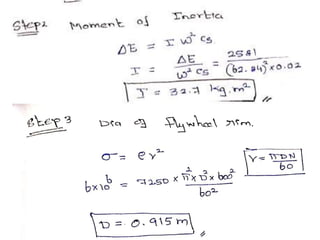 Step2 Moment of Inertia
ΔE = I ω² Cs
I = ΔE / ω² Cs = 2581 / (62.84)² × 0.02
I = 32.7 kg.m²
Step 3 Dia of flywheel rim.
σ = ρv²
v = πDN / 60
6×10⁶ = 7250 × π² × D² × 600² / 60²
D = 0.915 m